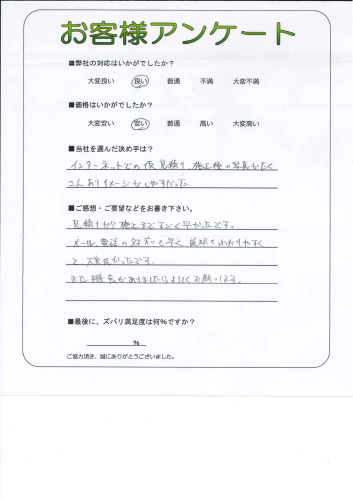 お客様アンケート
■弊社の対応はいかがでしたか？
大変良い 良い 普通 不満 大変不満
■価格はいかがでしたか？
大変安い 安い 普通 高い 大変高い
■当社を選んだ決め手は？
インターネットでの仮見積り、施工後の写真がたく
さんありイメージしやすかった
■ご感想・ご要望などをお書き下さい。
見積りから施工まですごく早かったです。
メール、電話の対応も早く、説明もわかりやすく
て、大変良かったです。
また機会がありましたらよろしくお願います。
■最後に、ズバリ満足度は何％ですか？
％
ご協力頂き、誠にありがとうございました。